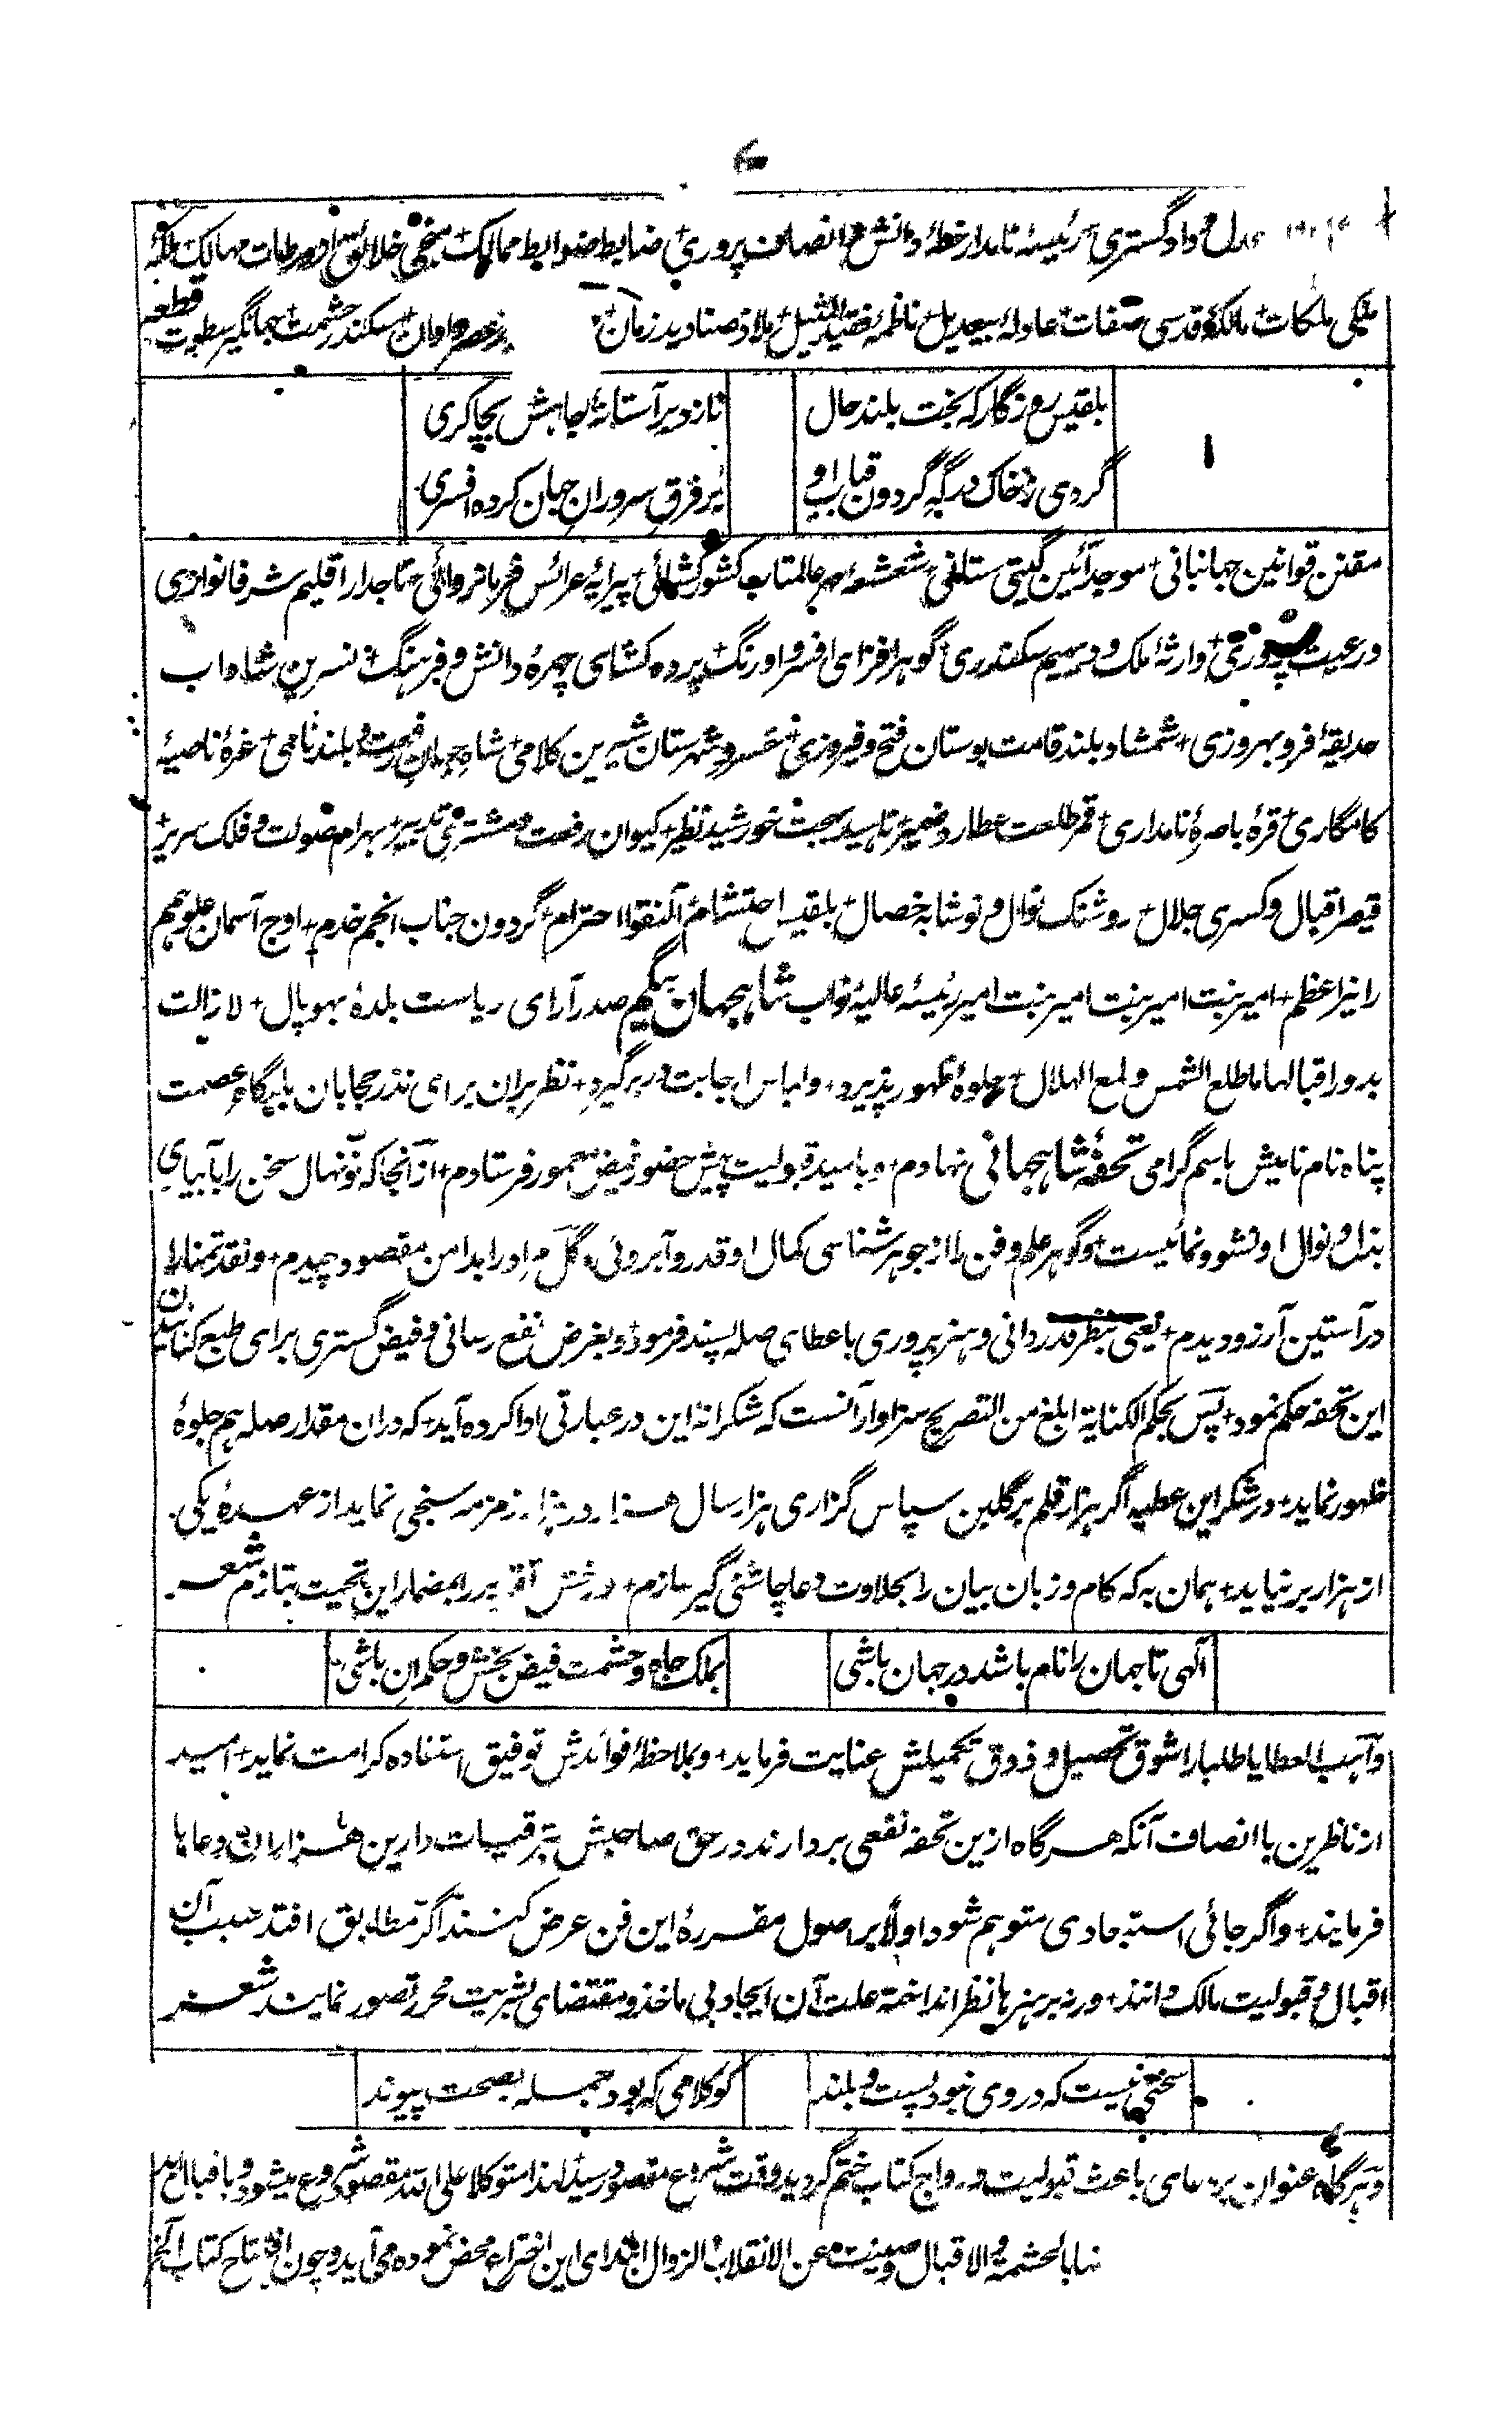 عدل و دادگستری + رئیسهٔ نامدار خطهٔ دانش و انصاف پروری + ضابط ضوابط ممالک + منجی خلائق از ورطات مهالک + ملکهٔ
ملکی ملکات + مالکهٔ قدسی صفات + عادلهٔ بیعدیل + ناظمهٔ فقید المثیل + ملاذ صنادید زمان + عصر و اوان + سکندر حشمت + جهانگیر سطوت قطعه
بلقیس روزگار که بخت بلند حال
نازد بر آستانهٔ جاهش بچاکری
گردی ز خاک درگه گردون قباب او
بر فرق سرورانِ جهان کرده افسری
مقنن قوانین جهانبانی + موجد آئین گیتی ستانی + شعشعهٔ مهر عالمتاب کشورکشائی + پیرایهٔ عرائس فرمانروائی + تاجدار اقلیم شرفا نوازی
و رعیت پروری + وارثهٔ ملک و دیهیم سکندری + گوهر افزای افسر و اورنگ + پرده کشای چهرهٔ دانش و فرہنگ + نسرین شاداب
حدیقهٔ فر و بهروزی + شمشاد بلند قامت بوستان فتح و فیروزی + خسرو شهرستان شیرین کلامی + شاه جهان رفعت و بلند نامی + غرهٔ ناصیهٔ
کامگاری + قرهٔ باصرهٔ نامداری + قمر طلعت عطارد ضمیر + ناہید بهجت خورشید نظیر + کیوان رفعت و مشتری تدبیر + بهرام صولت و فلک سریر +
قیصر اقبال و کسری جلال + روشنک نوال و نوشابه خصال + بلقیس احتشام + آلنقوا احترام + گردون جناب انجم خدم + اوج آسمان علو همم
را نیر اعظم + امیر بنت امیر بنت امیر بنت امیر رئیسهٔ عالیه نواب شاہجهان بیگم صدر آرای ریاست بلدهٔ بهوپال + لا زالت
بدور اقبالها ما طلع الشمس و لمع الهلال + جلوهٔ ظهور پذیرد + و لباس اجابت در بر گیرد + نظر بران برای نذر حجابان بارگاه عصمت
پناه نام نامیش باسم گرامی تحفهٔ شاہجهانی نهادم + و بامید قبولیت پیش حضور فیض معمور فرستادم + از آنجا که نونهال سخن را بآبیاری
بذل و نوال او نشو و نمائیست + و گوهر علم و فن را از جوهر شناسی کمال او قدر و آبروئی + گل مراد را بدامن مقصود چیدم + و نقد تمنا را
در آستین آرزو دیدم + یعنی بنظر قدردانی و هنر پروری باعطای صله پسند فرمود + و بغرض نفع رسانی و فیض گستری برای طبع کنانیدن
این تحفه حکم نمود + پس بحکم الکنایة ابلغ من التصریح سزاوار آنست که شکرانهٔ این در عبارتی ادا کرده آید + که دران مقدار صله هم جلوهٔ
ظهور نماید + در شکر این عطیه اگر هزار قلم بر گلبن سپاس گزاری هزار سال هزار زمزمه سنجی نماید از عهدهٔ یکی
از هزار بر نیاید + همان به که کام و زبان بیان را بحلاوت دعا چاشنی گیر سازم + و بمضمار این تحیت بتازم شعر
الهی تا جهان را نام باشد در جهان باشی
بملک جاه و حشمت فیض بخش و حکمران باشی
واهب العطایا طلبا را شوق تحصیل و ذوق تکمیلش عنایت فرماید + و بملاحظهٔ فوائدش توفیق استفاده کرامت نماید + امید
از ناظرین با انصاف آنکه هرگاه ازین تحفه نفعی بردارند در حق صاحبش بترقیات دارین هزاران دعاها
فرمایند + و اگر جائی استبعادی متوهم شود اولاً بر اصول مقررهٔ این فن عرض کنند اگر مطابق افتد سبب آن
اقبال و قبولیت مالک دانند + ورنه بر هنرها نظر انداخته علت آن ایجاد بی ماخذ و مقتضای بشریت محرر تصور نمایند شعر
سخنی نیست که در وی نبود پست و بلند
کو کلامی که بود جمله بصحت پیوند
و هرگاه عنوان بر دعای باعث قبولیت و رواج کتاب ختم گردید وقت شروع مقصود رسید لهذا متوکلا علی الله مقصود شروع میشود و
بالحشمة و الاقبال و صینت عن الانقلاب و الزوال ابتدای این اختراع محض نموده می آید و چون افتتاح کتاب